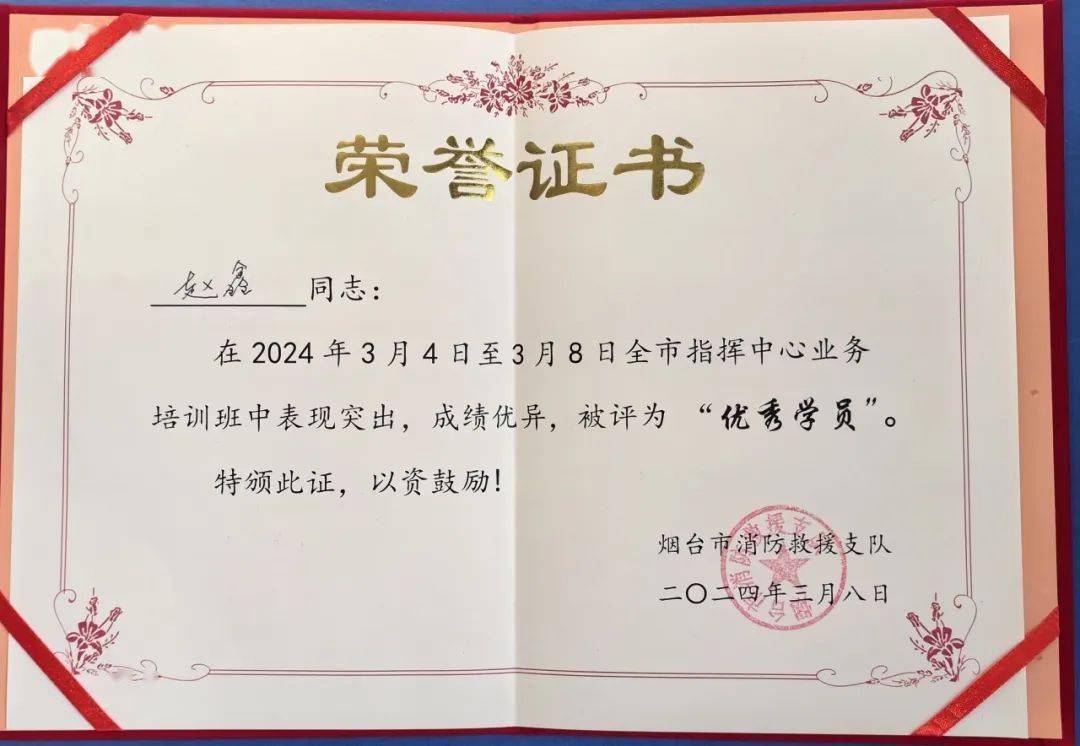 荣誉证书
赵鑫 同志：
在 2024 年 3 月 4 日至 3 月 8 日全市指挥中心业务
培训班中表现突出，成绩优异，被评为 “优秀学员”。
特颁此证，以资鼓励！
烟台市消防救援支队
二〇二四年三月八日
烟台市消防救援支队